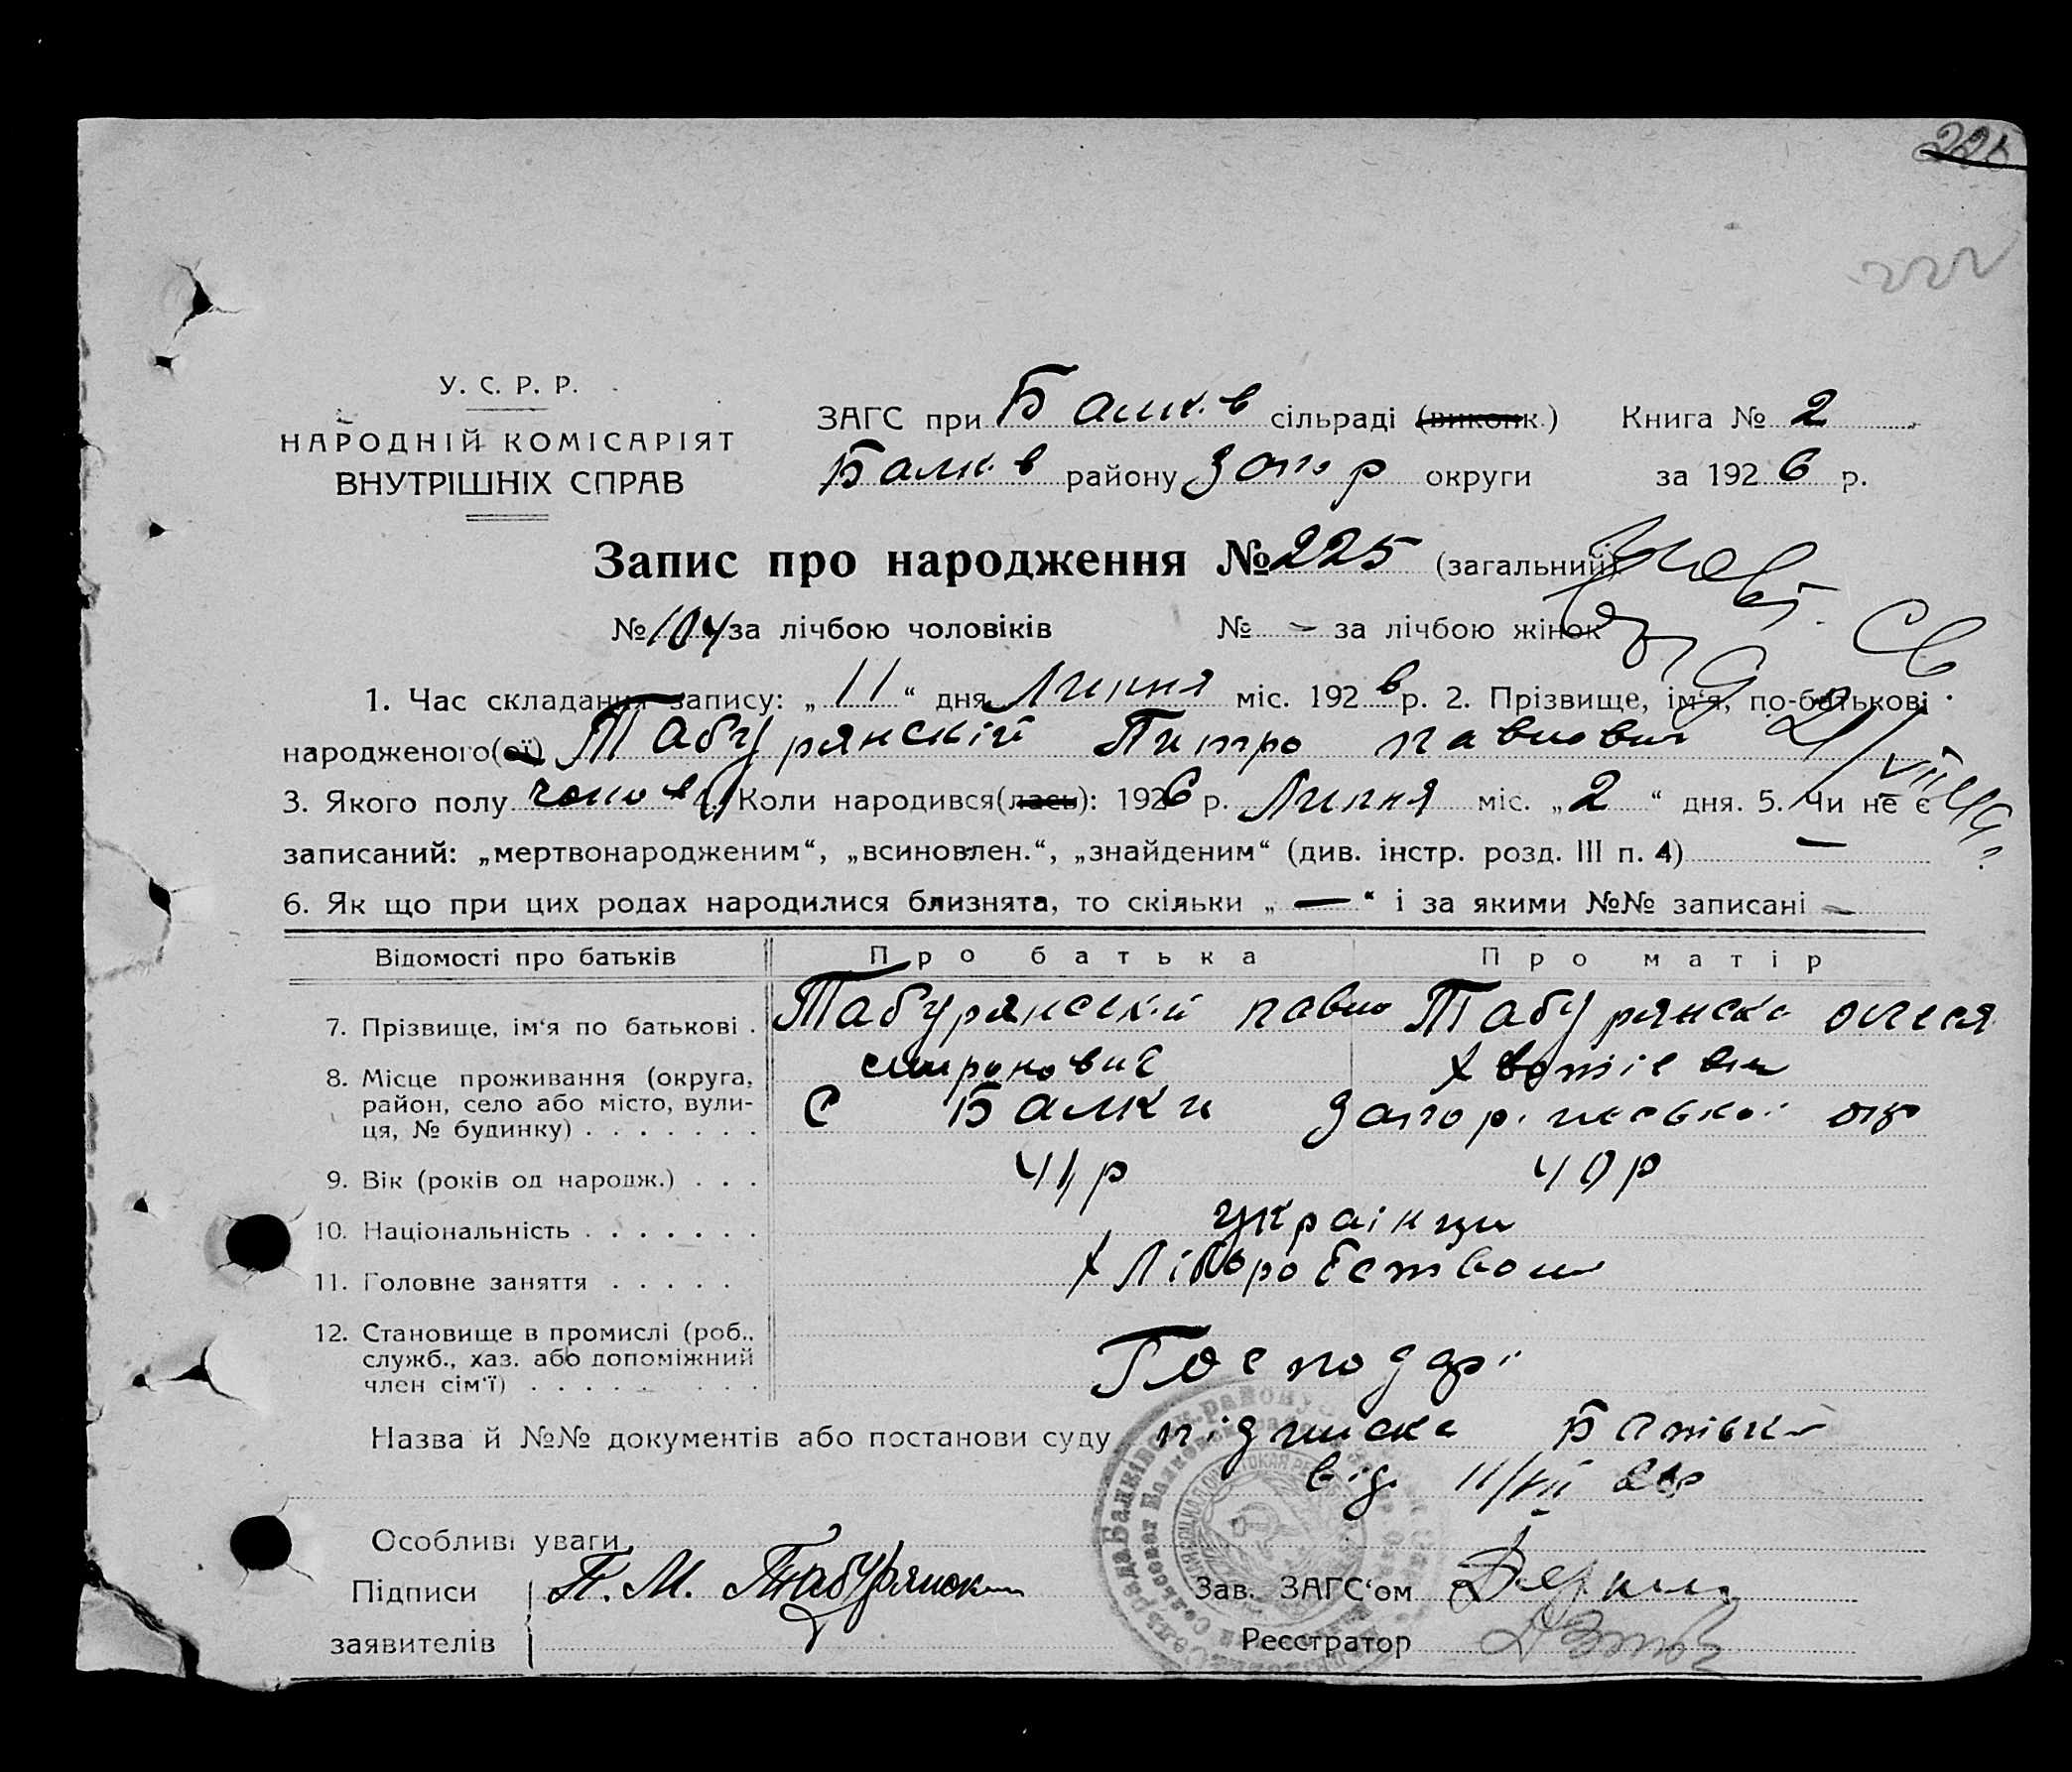 225
222
У. С. Р. Р.
НАРОДНІЙ КОМІСАРІЯТ
ВНУТРІШНІХ СПРАВ
ЗАГС при Балк.в сільраді (виконк.) Книга № 2
Балк.в району Запор округи за 1926 р.
Запис про народження № 225 (загальний)
№ 104 за лічбою чоловіків № – за лічбою жінок
1. Час складання запису: „ 11 “ дня Липня міс. 1926 р. 2. Прізвище, ім‘я, по-батькові
народженого(ої) Табурянский Питро павлович
3. Якого полу чолов 4. Коли народився(лась): 1926 р. Липня міс. „ 2 “ дня. 5. Чи не є
записаний: „мертвонародженим“, „всиновлен.“, „знайденим“ (див. інстр. розд. III п. 4) —
6. Як що при цих родах народилися близнята, то скільки „ — “ і за якими №№ записані –
Відомості про батьків Про батька Про матір
7. Прізвище, ім‘я по батькові . Табурянский павло Табурянска олеся
миронович
8. Місце проживання (округа,
район, село або місто, вули-
ця, № будинку) . . . . . . . С Балки Запоріжської окр
9. Вік (років од народж.) . . . 41 р 40 р
10. Національність . . . . . . . українци
11. Головне заняття . . . . . Хліборобством
12. Становище в промислі (роб.,
служб., хаз. або допоміжний
член сім‘ї) . . . . . . . . . Господарі
Назва й №№ документів або постанови суду підписка Батька
від 11/VII 26р
Особливі уваги
Підписи
заявителів
П. М. Табурянск
Зав. ЗАГС‘ом
Реєстратор